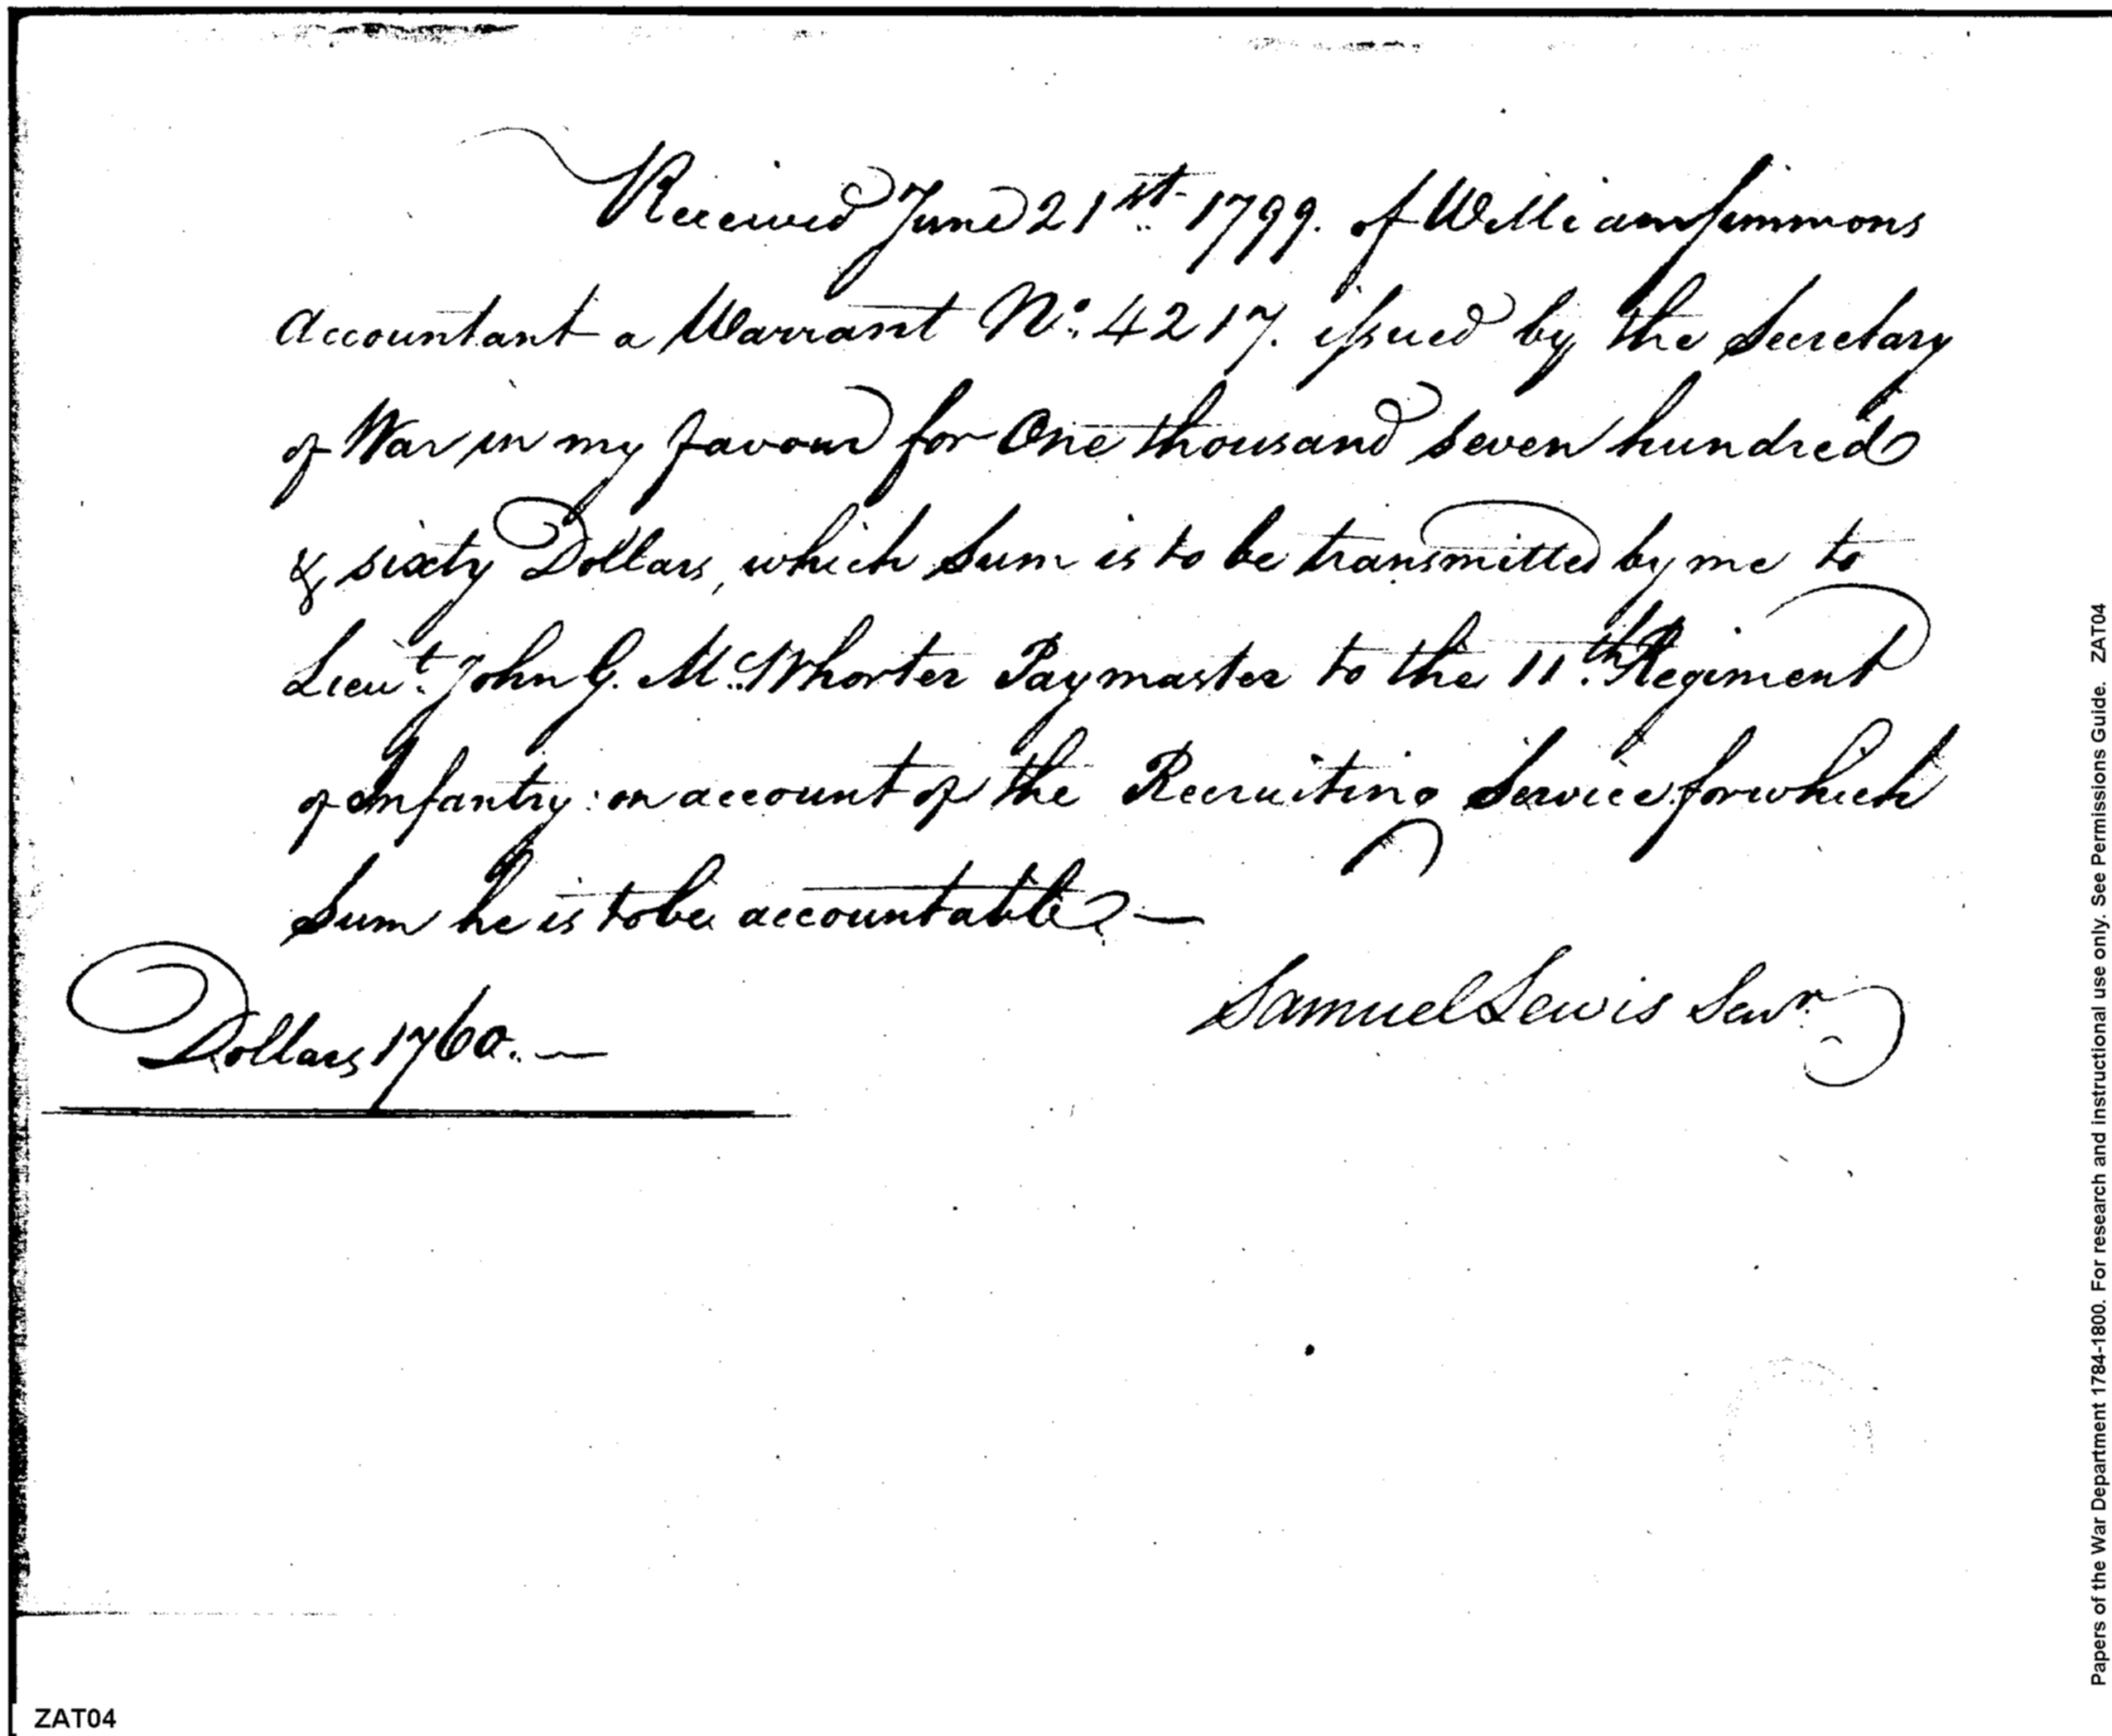 Received June 21st 1799. of William Simmons
Accountant a Warrant No. 4217. issued by the Secretary
of War in my favour for One thousand seven hundred
& sixty Dollars, which Sum is to be transmitted by me to
Lieut. John G. McWhorter Paymaster to the 11th Regiment
of Infantry: on account of the Recruiting Service for which
Sum he is to be accountable. —
Samuel Lewis Senr.
Dollars 1760. —
ZAT04
Papers of the War Department 1784-1800. For research and instructional use only. See Permissions Guide. ZAT04